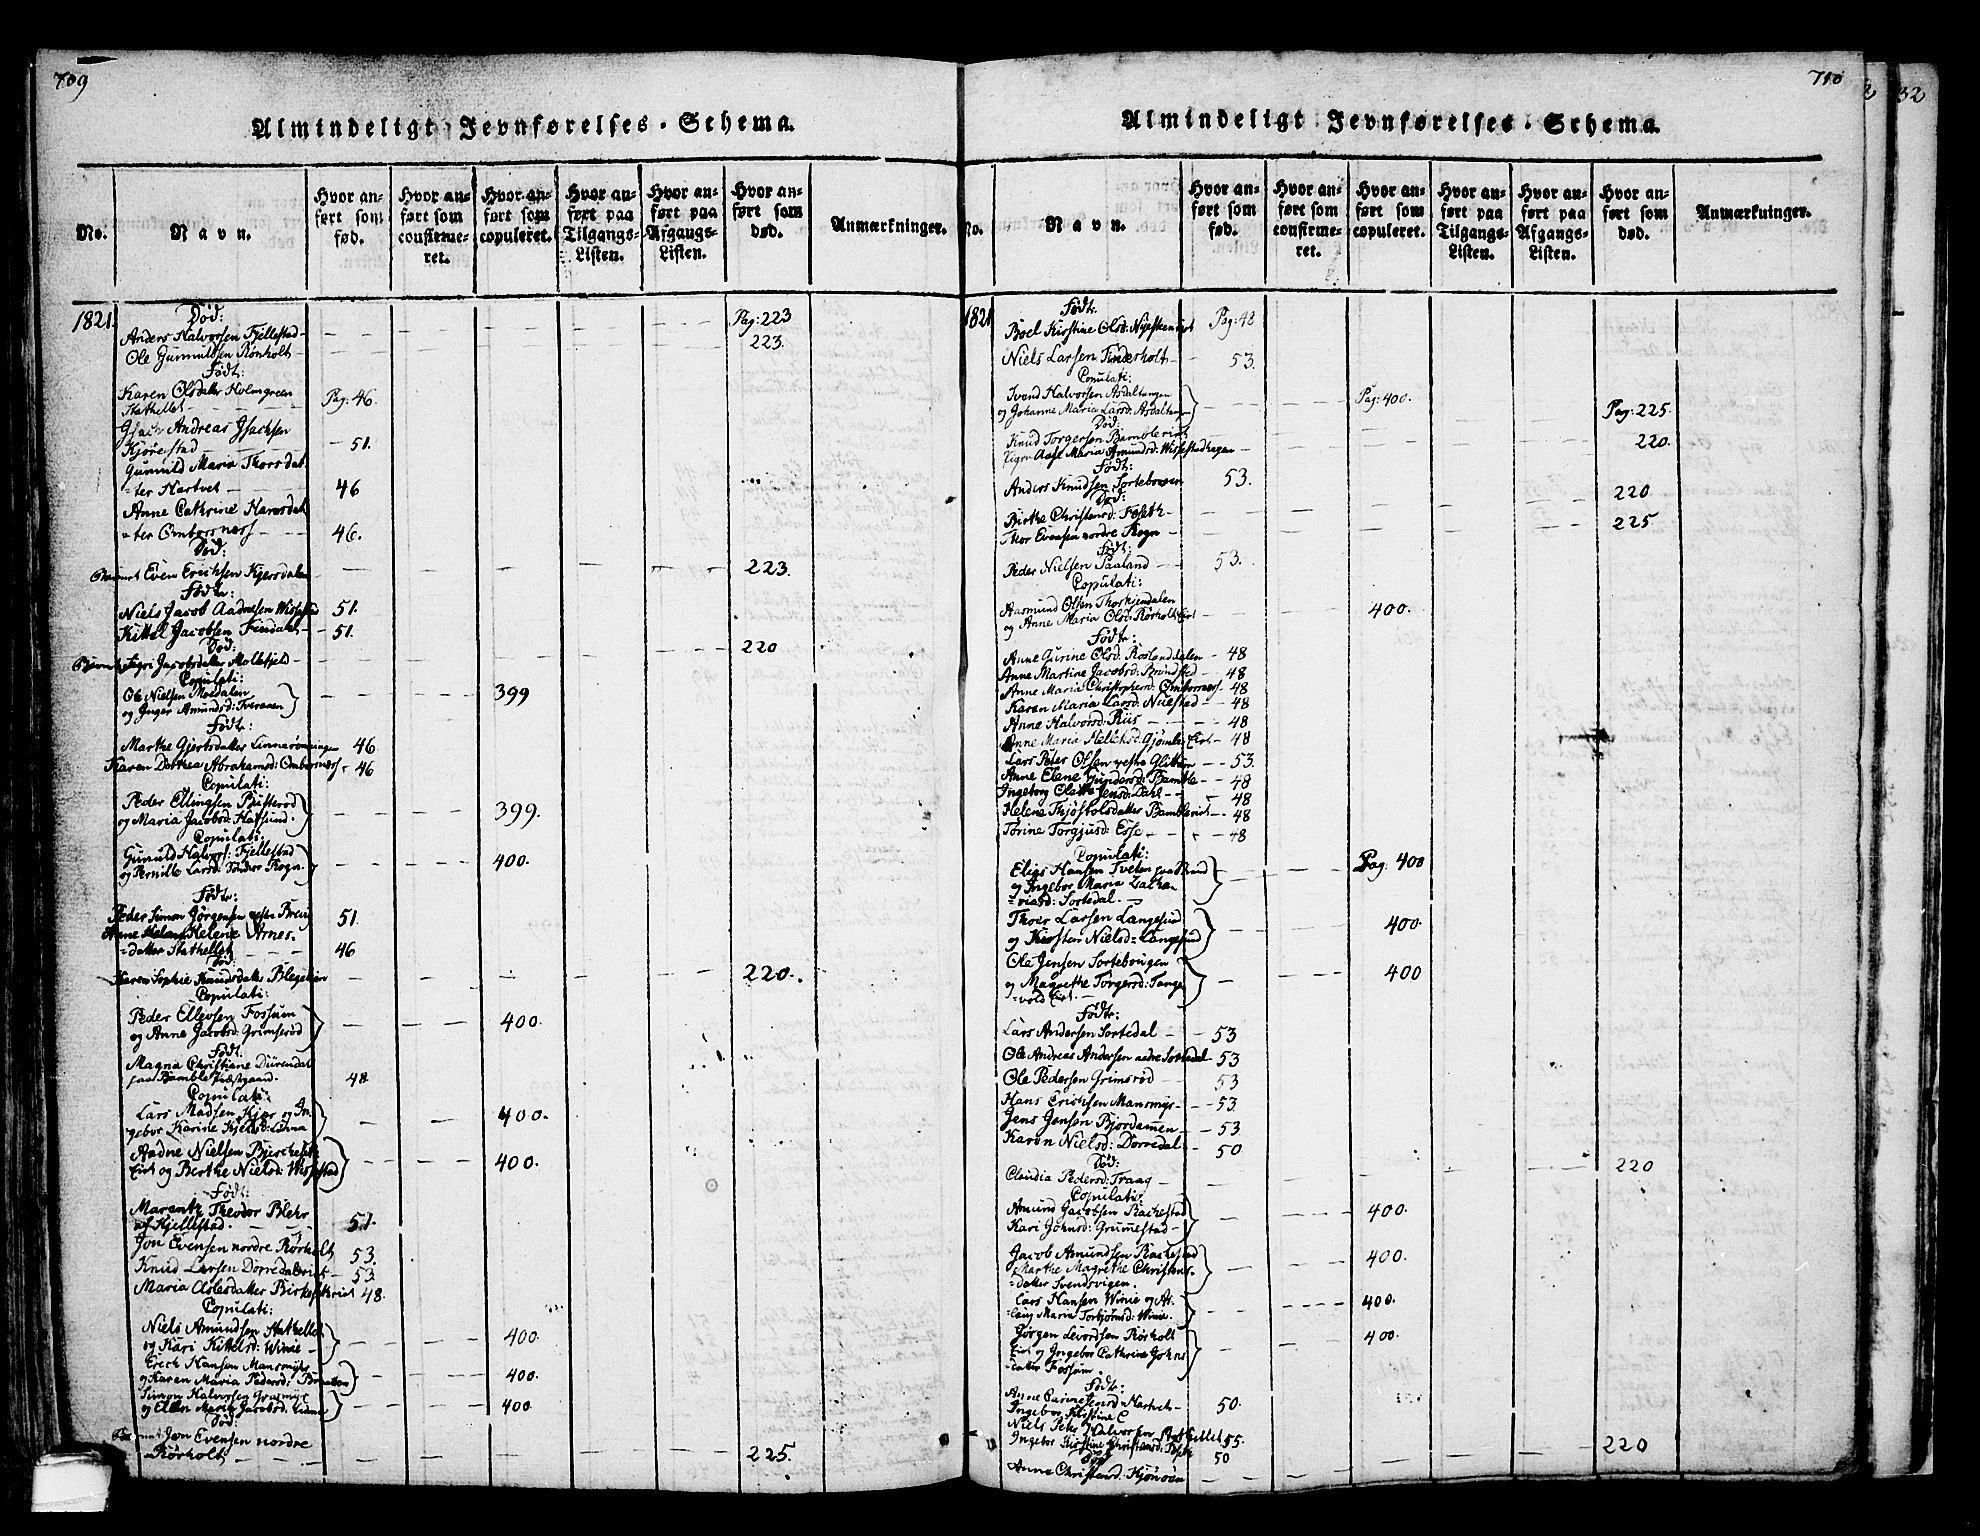 709
Almindeligt Jevnførelses-Schema.
No.
Navn.
Hvor anført som fød.
Hvor anført som confirmeret.
Hvor anført som copuleret.
Hvor anført paa Tilgangs-Listen.
Hvor anført paa Afgangs-Listen.
Hvor anført som død.
Anmærkninger.
1821.
Død:
Anders Halvorsen Fjellestad - Pag: 223
Ole Gunnulfsen Rønholt - 223.
Født:
Karen Olsdatter Holmgreen
Stathellet - Pag: 46.
Isach Andreas Isachsen
Kjørestad - 51.
Gunnild Maria Thorsdat
=ter Hartvet - 46
Anne Cathrine Hansdat
=ter Ombornæss - 46.
Død:
Even Erichsen Kjersdalen - 223.
Født:
Niels Jacob Aadnesen Wissestad 51.
Kittel Jacobsen Findahl - 51.
Død:
Sigri Jacobsdatter Mollefjeld - 220
Copulati:
Ole Nielsen Moedalen
og Inger Amundsd: Tveraaen - 399
Født:
Marthe Gjertsdatter Linnerønningen 46
Karen Dorthea Abrahamsd: Ombornæss - 46
Copulati:
Peder Ellingsen Busterød
og Maria Jacobsd: Hafsund. - 399.
Copulati:
Gunuld Halvors: Fjellestad
og Pernille Larsd: Søndre Rogn - 400.
Født:
Peder Simon Jörgensen vestre Brevig 51.
Anne Helene Arnes=
=datter Stathellet - 46
Død:
Karen Sophie Knudsdatter Blegebæn - 220.
Copulati:
Peder Ellevsen Fossum
og Anne Jacobsd: Grimserød - 400.
Født.
Magna Christiane Dürendal
paa Bamble Præstgaard. 48
Copulati:
Lars Madsen Kjær og In=
gebor Karine Kjelsd: Linna - 400.
Aadne Nielsen Bjerchesett
Eiet og Berthe Nielsd: Wissestad - 400.
Født:
Marentz Theodor Blehr
af Kjellestad. - 51.
Jon Evensen nordre Rörholt 53.
Knud Larsen Dorredal - 53
Maria Aslesdatter 48.
Copulati:
Niels Amundsen Stathellet
og Kari Kittelsd: Winie - 400.
Erich Hansen Mansmyhr
og Karen Maria Pedersd: - 400.
Simon Halvorsen Grasmyr
og Ellen Maria Jacobsd: - 400
Død:
Jon Evensen nordre
Rörholt - 225.
710
Almindeligt Jevnførelses-Schema.
No.
Navn.
Hvor anført som fød.
Hvor anført som confirmeret.
Hvor anført som copuleret.
Hvor anført paa Tilgangs-Listen.
Hvor anført paa Afgangs-Listen.
Hvor anført som død.
Anmærkninger.
1821
Født.
Boel Kirstine Olsd: Pag: 48
Niels Larsen Tinderholt - 53.
Copulati:
Ivend Halvorsen Asdaltangen
og Johanne Maria Larsd: Asdaltangen - Pag: 400.
Død:
Knud Torgersen Bambleeiet Pag: 225.
Aase Maria Amundsd: Wissestadhagen - 220.
Født:
Anders Knudsen Sortebougen 53.
Død:
Birthe Christensd: Foseth - 220
Thor Evensen nordre Rogn - 225
Født:
Peder Nielsen Paaland - 53.
Copulati:
Aasmund Olsen Thorskjendalen
og Anne Maria Olsd: Rørholt Eiet - 400.
Født:
Anne Gurine Olsd: Roslanddalen - 48
Anne Martine Jacobsd: Brundsted - 48
Anne Maria Christophersd: Ombornæss - 48
Karen Maria Larsd: Nuestad - 48
Anne Halvorsd: Riis - 48
Anne Maria Hellichsd: Gjømle Eiet - 48
Lars Peter Olsen vestre Glittum - 53.
Anne Elene Gundersd: Bamble - 48
Ingeborg Olette Jensd: Dahl - 48
Helene Thjøstolsdatter Bambleeiet - 48
Torine Torgjusd: Esse - 48
Copulati:
Elias Hansen Tveten paa Strand
og Ingebor Maria Zacha=
=riasd: Sortedal. - Pag: 400
Thoer Larsen Langesund
og Kirsten Nielsd= Langesund - 400.
Ole Jensen Sortebougen
og Magrethe Torgersd: Tange
=vold Eiet. - 400
Født:
Lars Andersen Sortedal - 53
Ole Andreas Andersen nedre Sortedal 53
Ole Pedersen Grimsrød 53
Hans Erichsen Mansmyr - 53.
Jens Jensen Bjordammen - 53
Karen Nielsd: Dorredal 50
Død:
Claudia Pedersd: Traag - 220
Copulati:
Amund Jacobsen Rachestad
Kari Johnsd: Grummestad - 400.
Jacob Amundsen Rachestad
Marthe Magrethe Christens=
=datter Svendsvigen. - 400.
Lars Hansen Winie og As=
=laug Maria Torbjørnsd: Winie. - 400.
Jørgen Levordsen Rörholt
Eiet og Ingebor Cathrine Johns
=datter Fossum. - 400.
Født:
Anne Carine Jensd: Hartvet - 50.
Ingebor Kirstine C
Niels Peter Halvorsen Stathellet 55.
Ingebor Kirstine Christensd: 50
Død
Anne Christensd: Kjønøen - 220
32